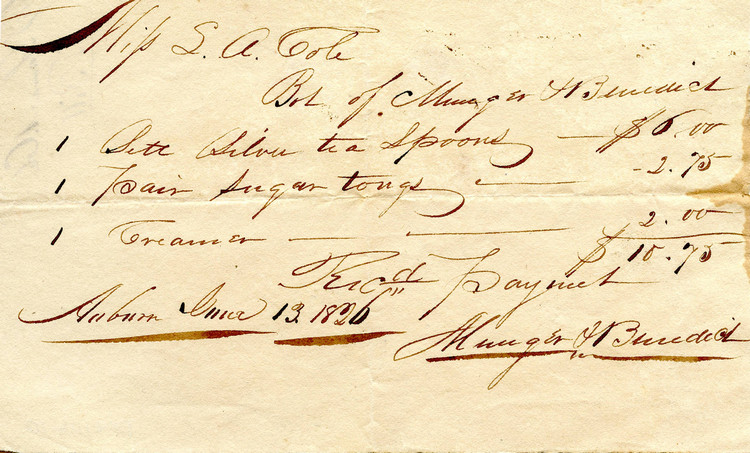 Miss L. A. Cole
Bot of Munger & Benedict
1 Sett Silver tea Spoons — $6.00
1 pair Sugar tongs — - 2.75
1 Creamer — — 2.00
$ 10.75
Recd Paymet
Auburn June 13. 1826
Munger & Benedict